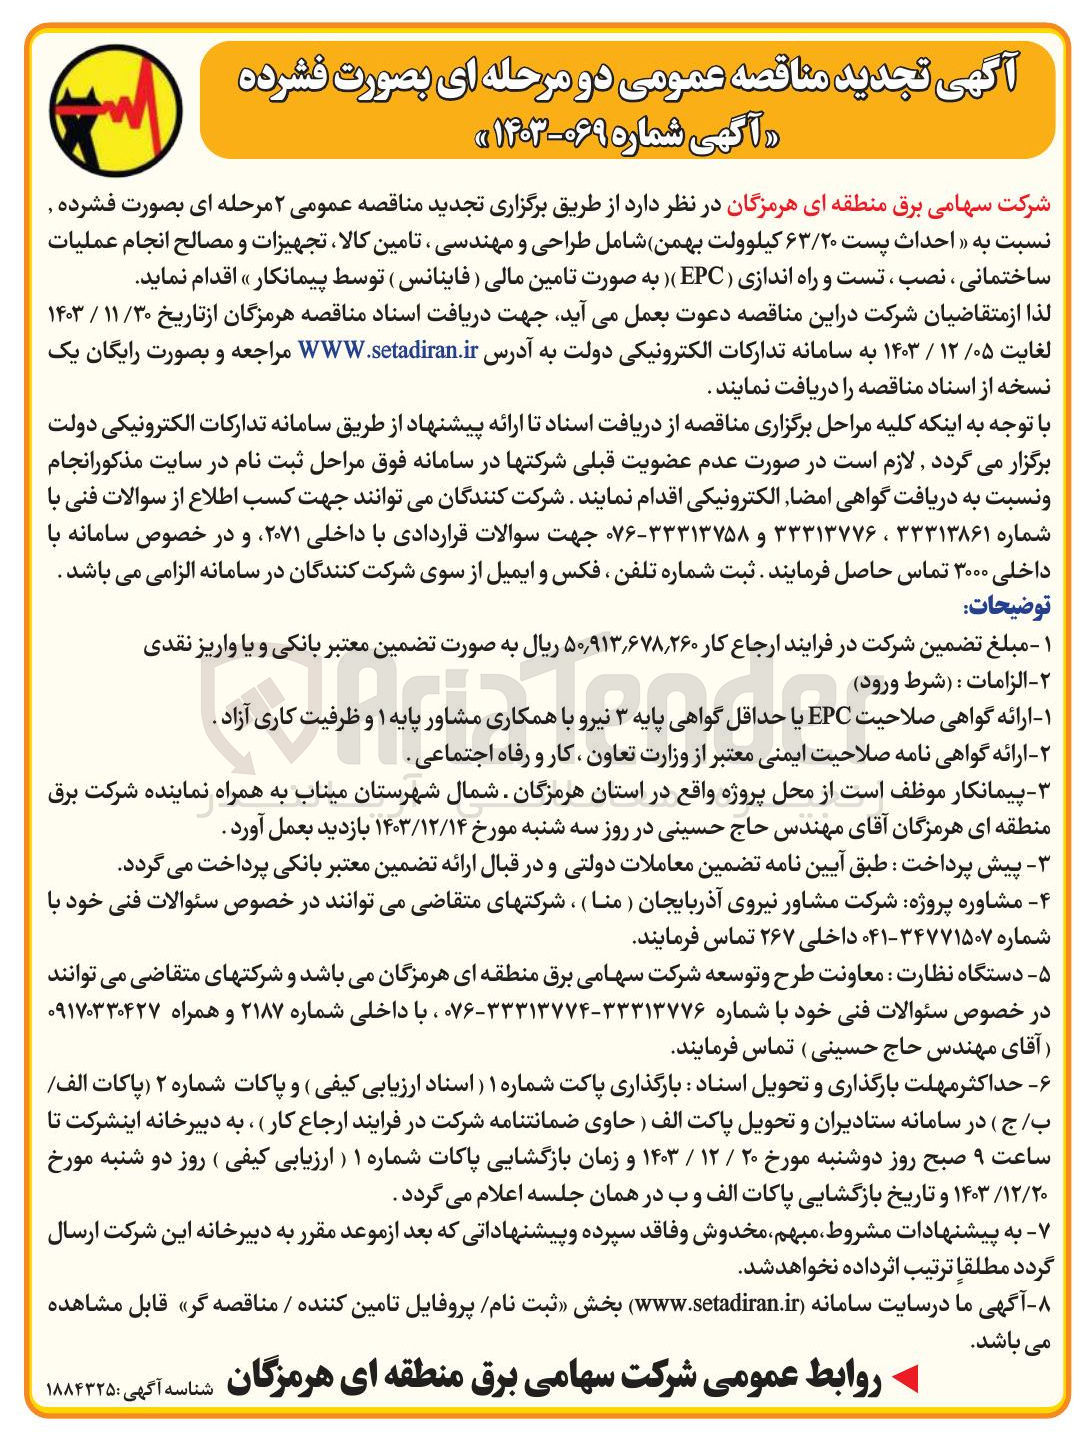 آگهی تجدید مناقصه عمومی دو مرحله ای بصورت فشرده
« آگهی شماره ۰۶۹-۱۴۰۳ »
شرکت سهامی برق منطقه ای هرمزگان در نظر دارد از طریق برگزاری تجدید مناقصه عمومی ۲مرحله ای بصورت فشرده ,
نسبت به « احداث پست ۶۳/۲۰ کیلوولت بهمن)شامل طراحی و مهندسی ، تامین کالا، تجهیزات و مصالح انجام عملیات
ساختمانی ، نصب ، تست و راه اندازی ( EPC )( به صورت تامین مالی ( فاینانس ) توسط پیمانکار » اقدام نماید.
لذا ازمتقاضیان شرکت دراین مناقصه دعوت بعمل می آید، جهت دریافت اسناد مناقصه هرمزگان ازتاریخ ۳۰/ ۱۱ / ۱۴۰۳
لغایت ۰۵/ ۱۲ / ۱۴۰۳ به سامانه تدارکات الکترونیکی دولت به آدرس WWW.setadiran.ir مراجعه و بصورت رایگان یک
نسخه از اسناد مناقصه را دریافت نمایند .
با توجه به اینکه کلیه مراحل برگزاری مناقصه از دریافت اسناد تا ارائه پیشنهاد از طریق سامانه تدارکات الکترونیکی دولت
برگزار می گردد , لازم است در صورت عدم عضویت قبلی شرکتها در سامانه فوق مراحل ثبت نام در سایت مذکورانجام
ونسبت به دریافت گواهی امضا, الکترونیکی اقدام نمایند . شرکت کنندگان می توانند جهت کسب اطلاع از سوالات فنی با
شماره ۳۳۳۱۳۸۶۱ ، ۳۳۳۱۳۷۷۶ و ۳۳۳۱۳۷۵۸-۰۷۶ جهت سوالات قراردادی با داخلی ۲۰۷۱، و در خصوص سامانه با
داخلی ۳۰۰۰ تماس حاصل فرمایند . ثبت شماره تلفن ، فکس و ایمیل از سوی شرکت کنندگان در سامانه الزامی می باشد .
توضیحات:
۱-مبلغ تضمین شرکت در فرایند ارجاع کار ۵۰,۹۱۳,۶۷۸,۲۶۰ ریال به صورت تضمین معتبر بانکی و یا واریز نقدی
۲-الزامات : (شرط ورود)
۱-ارائه گواهی صلاحیت EPC یا حداقل گواهی پایه ۳ نیرو با همکاری مشاور پایه ۱ و ظرفیت کاری آزاد .
۲-ارائه گواهی نامه صلاحیت ایمنی معتبر از وزارت تعاون ، کار و رفاه اجتماعی .
۳-پیمانکار موظف است از محل پروژه واقع در استان هرمزگان . شمال شهرستان میناب به همراه نماینده شرکت برق
منطقه ای هرمزگان آقای مهندس حاج حسینی در روز سه شنبه مورخ ۱۴۰۳/۱۲/۱۴ بازدید بعمل آورد .
۳- پیش پرداخت : طبق آیین نامه تضمین معاملات دولتی و در قبال ارائه تضمین معتبر بانکی پرداخت می گردد.
۴- مشاوره پروژه: شرکت مشاور نیروی آذربایجان ( منا ) ، شرکتهای متقاضی می توانند در خصوص سئوالات فنی خود با
شماره ۳۴۷۷۱۵۰۷-۰۴۱ داخلی ۲۶۷ تماس فرمایند.
۵- دستگاه نظارت : معاونت طرح وتوسعه شرکت سهامی برق منطقه ای هرمزگان می باشد و شرکتهای متقاضی می توانند
در خصوص سئوالات فنی خود با شماره ۳۳۳۱۳۷۷۶-۳۳۳۱۳۷۷۴-۰۷۶ ، با داخلی شماره ۲۱۸۷ و همراه ۰۹۱۷۰۳۳۰۴۲۷
( آقای مهندس حاج حسینی ) تماس فرمایند.
۶- حداکثرمهلت بارگذاری و تحویل اسناد : بارگذاری پاکت شماره ۱ ( اسناد ارزیابی کیفی ) و پاکات شماره ۲ (پاکات الف/
ب/ ج ) در سامانه ستادیران و تحویل پاکت الف ( حاوی ضمانتنامه شرکت در فرایند ارجاع کار ) ، به دبیرخانه اینشرکت تا
ساعت ۹ صبح روز دوشنبه مورخ ۲۰ / ۱۲ / ۱۴۰۳ و زمان بازگشایی پاکات شماره ۱ ( ارزیابی کیفی ) روز دو شنبه مورخ
۱۴۰۳ /۱۲/۲۰ و تاریخ بازگشایی پاکات الف و ب در همان جلسه اعلام می گردد .
۷- به پیشنهادات مشروط،مبهم،مخدوش وفاقد سپرده وپیشنهاداتی که بعد ازموعد مقرر به دبیرخانه این شرکت ارسال
گردد مطلقاً ترتیب اثرداده نخواهدشد.
۸-آگهی ما درسایت سامانه (www.setadiran.ir) بخش «ثبت نام/ پروفایل تامین کننده / مناقصه گر» قابل مشاهده
می باشد.
روابط عمومی شرکت سهامی برق منطقه ای هرمزگان
شناسه آگهی :۱۸۸۴۳۲۵
AriaTender